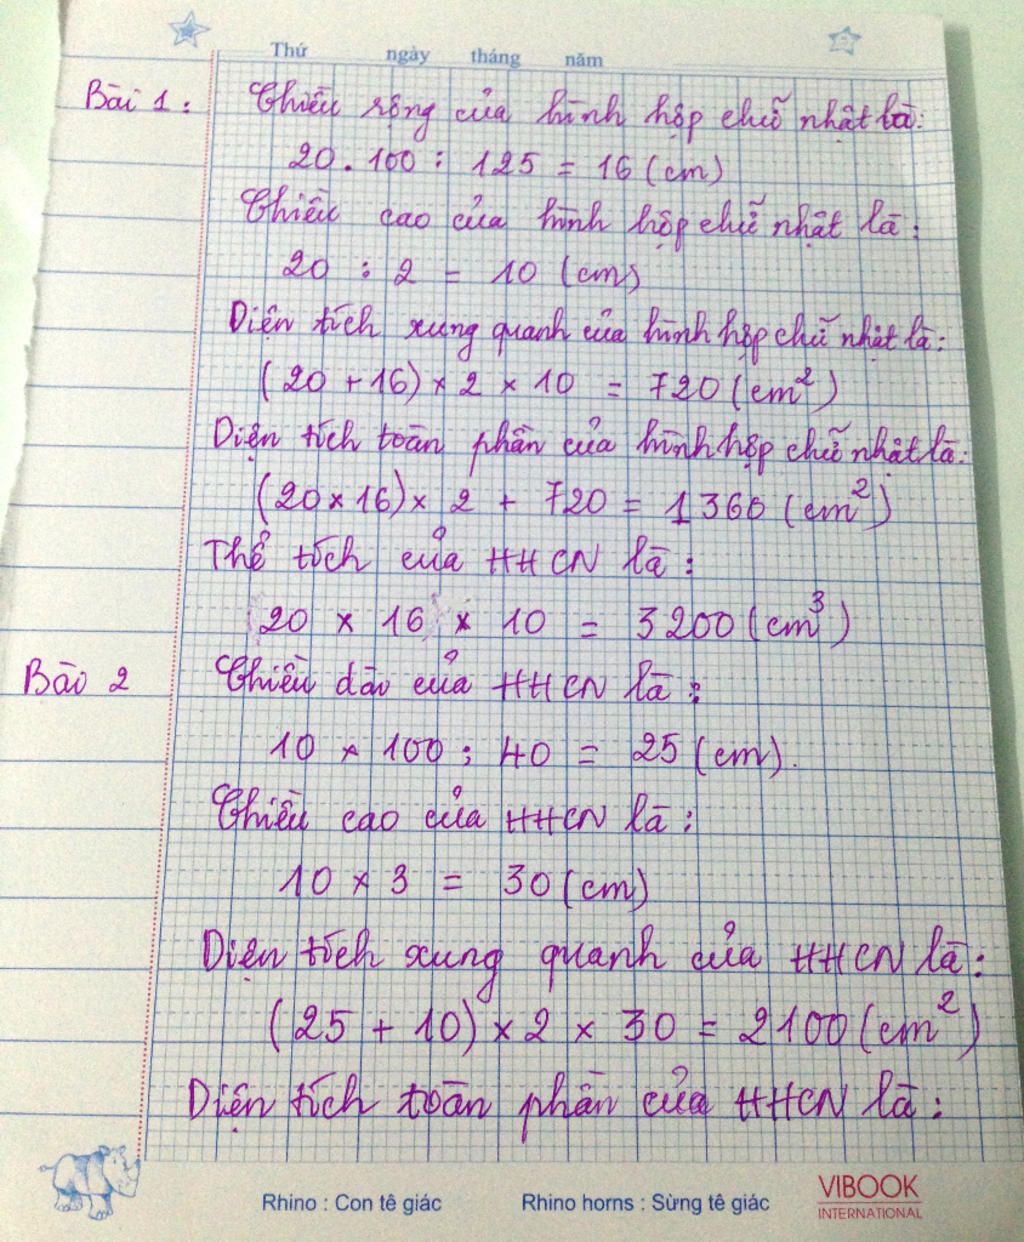 Thứ ngày tháng năm
Bài 1: Chiều rộng của hình hộp chữ nhật là:
20 . 100 : 125 = 16 (cm)
Chiều cao của hình hộp chữ nhật là:
20 : 2 = 10 (cm)
Diện tích xung quanh của hình hộp chữ nhật là:
(20 + 16) × 2 × 10 = 720 (cm²)
Diện tích toàn phần của hình hộp chữ nhật là:
(20 × 16) × 2 + 720 = 1360 (cm²)
Thể tích của HHCN là:
20 × 16 × 10 = 3200 (cm³)
Bài 2 Chiều dài của HHCN là:
10 × 100 : 40 = 25 (cm).
Chiều cao của HHCN là:
10 × 3 = 30 (cm)
Diện tích xung quanh của HHCN là:
(25 + 10) × 2 × 30 = 2100 (cm²)
Diện tích toàn phần của HHCN là:
Rhino : Con tê giác Rhino horns : Sừng tê giác VIBOOK
INTERNATIONAL